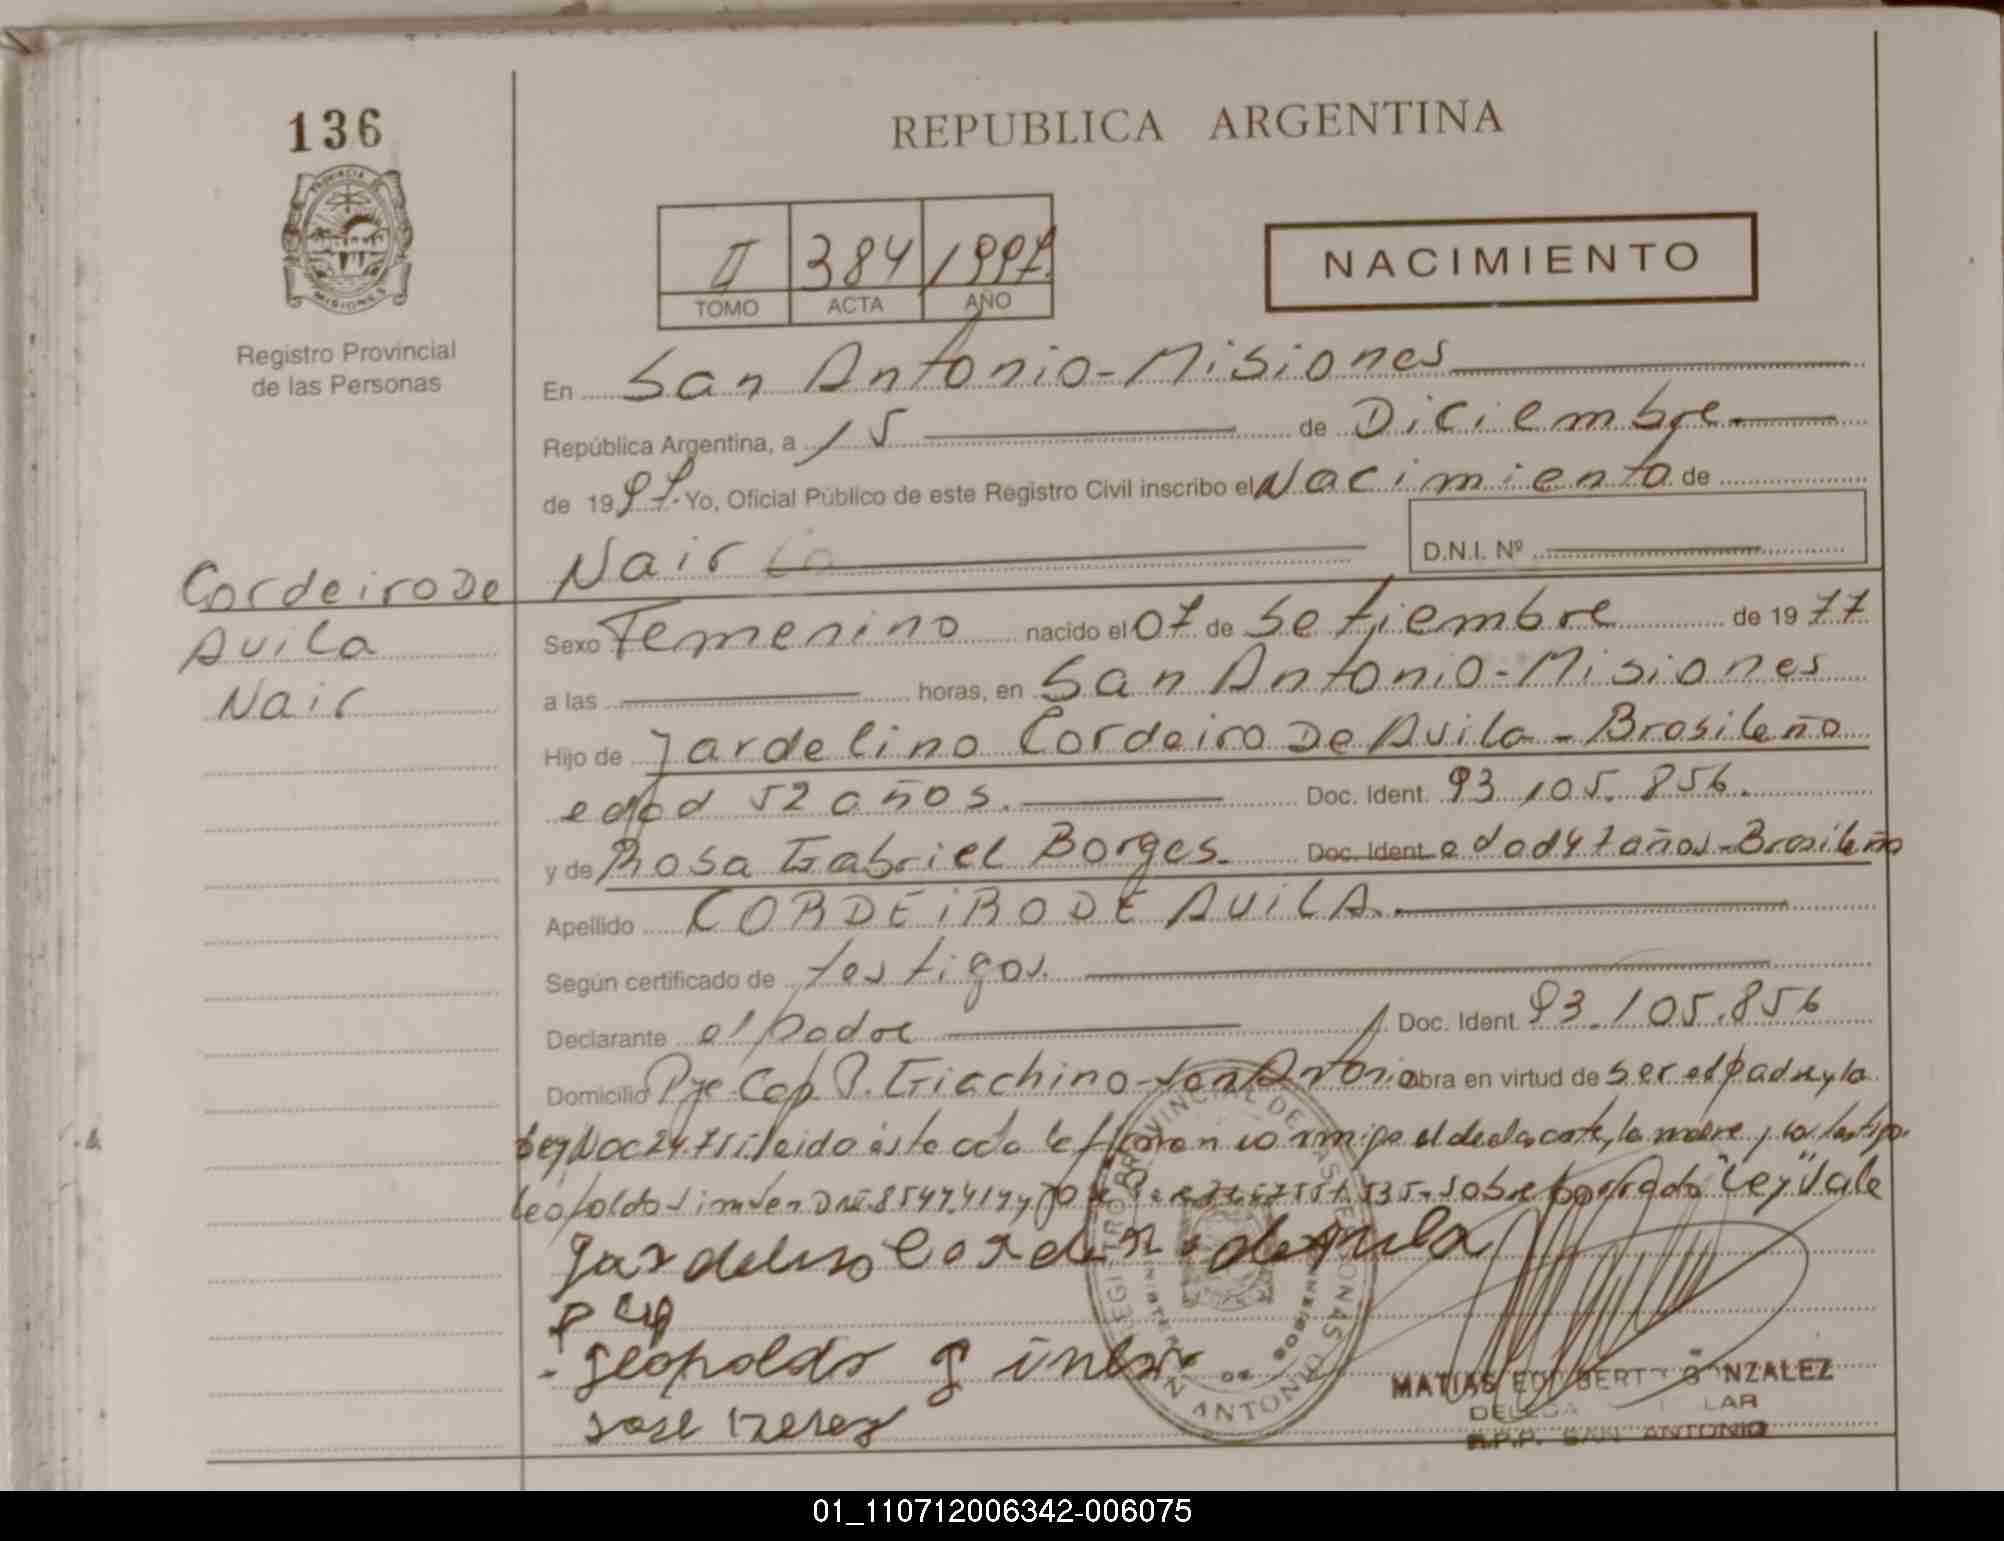 136
PROVINCIA DE
MISIONES
Registro Provincial
de las Personas
REPUBLICA ARGENTINA
II 384 1997.
TOMO ACTA AÑO
NACIMIENTO
En San Antonio-Misiones
República Argentina, a 15 de Diciembre.
de 1997. Yo, Oficial Público de este Registro Civil inscribo el Nacimiento de
Nair
D.N.I. Nº
Cordeiro De
Avila
Nair
Sexo Femenino nacido el 07 de Setiembre de 1977
a las horas, en San Antonio-Misiones
Hijo de Jardelino Cordeiro De Avila - Brasileño
edad 52 años. Doc. Ident. 93.105.856.
y de Rosa Gabriel Borges. Doc. Ident. edad 47 años-Brasileña
Apellido CORDEIRO DE AVILA.
Según certificado de testigos.
Declarante el padre Doc. Ident. 93.105.856
Domicilio Pje Cap P. Giachino-San Antonio obra en virtud de ser el padre y la
Ley Noc 24.751. Leido este acta le firman conmigo el declarante, la madre y los testigos
Leopoldo DNI 8547419 y sobre borrado "Ley" Vale
Jardelino Cordeiro de avila
Leopoldo
Jose Perez
REGISTRO PROVINCIAL DE LAS PERSONAS
SAN ANTONIO
MATIAS EDILBERTO GONZALEZ
R.P.P. SAN ANTONIO
01_110712006342-006075